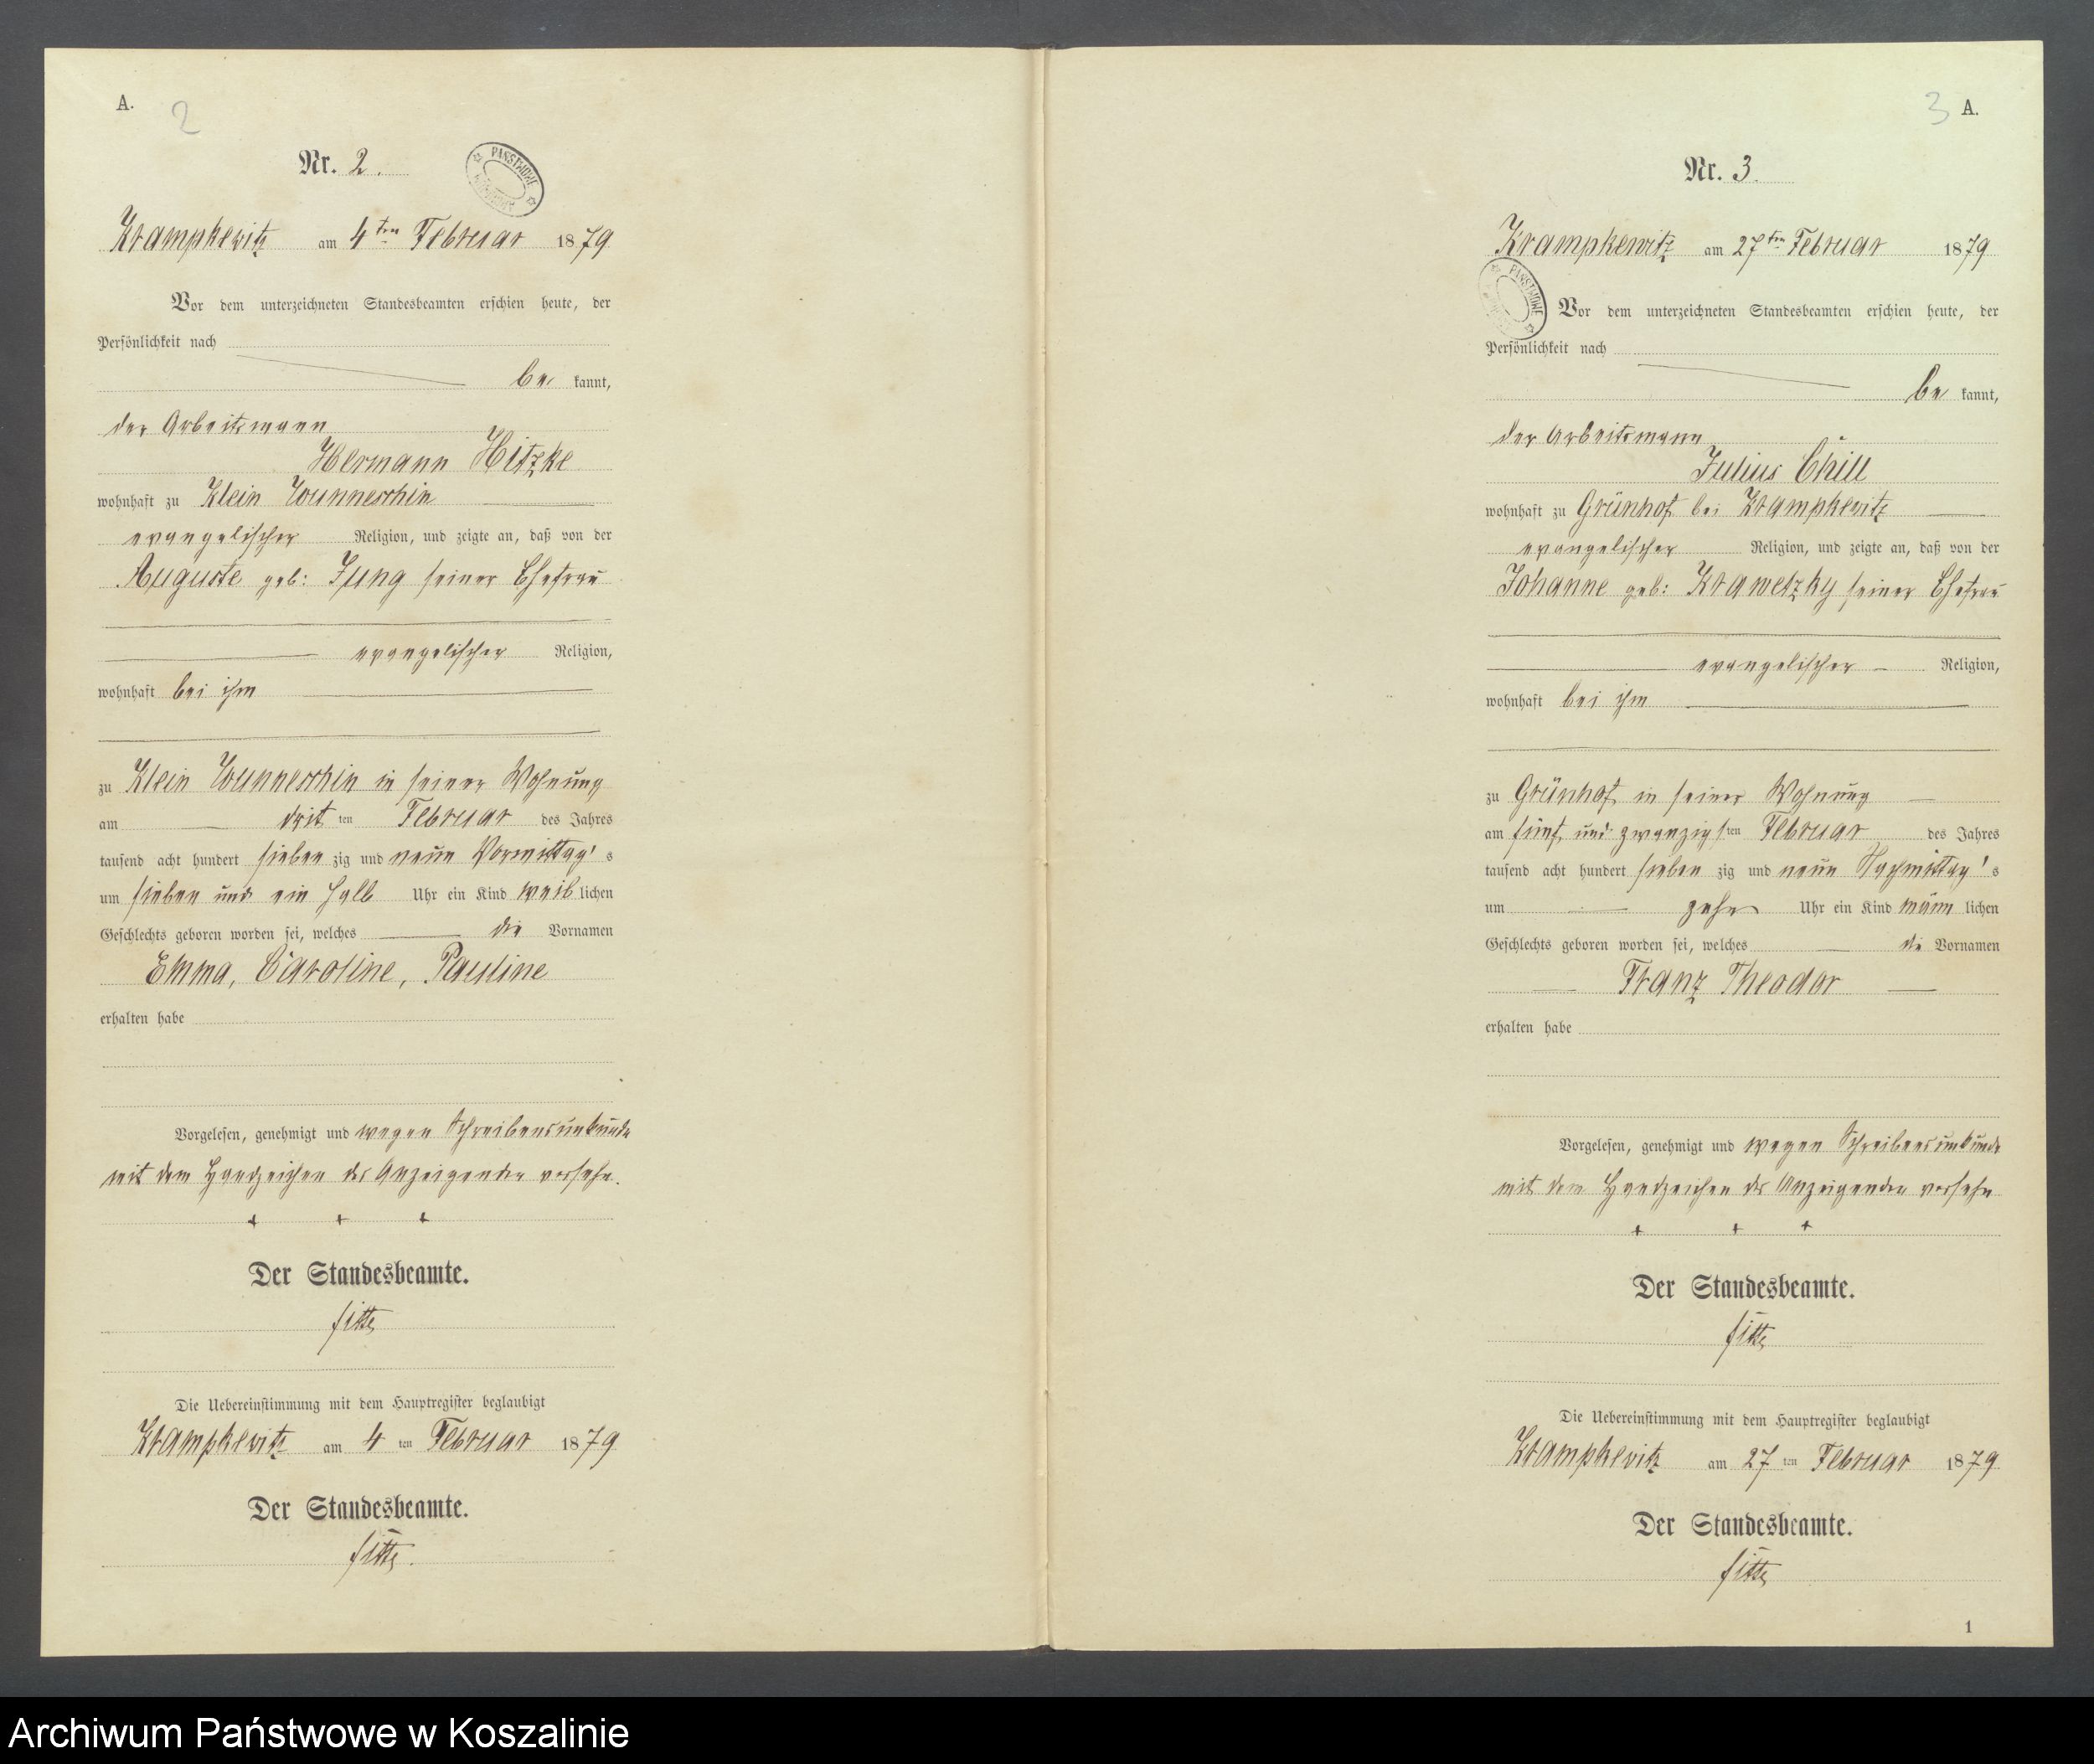 A.
2
Nr. 2.
PAŃSTWOWE
Krampkewitz am 4ten Februar 1879
Vor dem unterzeichneten Standesbeamten erschien heute, der
Persönlichkeit nach
be kannt,
der Arbeitsmann
Hermann Hitzke
wohnhaft zu Klein Wunneschin
evangelischer Religion, und zeigte an, daß von der
Auguste geb: Jung seiner Ehefrau
evangelischer Religion,
wohnhaft bei ihm
zu Klein Wunneschin in seiner Wohnung
am drit ten Februar des Jahres
tausend acht hundert sieben zig und neun Vormittag's
um sieben und ein halb Uhr ein Kind weib lichen
Geschlechts geboren worden sei, welches die Vornamen
Emma, Caroline, Pauline
erhalten habe
Vorgelesen, genehmigt und wegen Schreibensunkunde
mit dem Handzeichen des Anzeigenden versehn.
+ + +
Der Standesbeamte.
Die Uebereinstimmung mit dem Hauptregister beglaubigt
Krampkewitz am 4 ten Februar 1879
Der Standesbeamte.
3 A.
Nr. 3.
Krampkewitz am 27ten Februar 1879
PAŃSTWOWE
Vor dem unterzeichneten Standesbeamten erschien heute, der
Persönlichkeit nach
be kannt,
der Arbeitsmann
Julius Chill
wohnhaft zu Grünhof bei Krampkewitz
evangelischer Religion, und zeigte an, daß von der
Johanne geb: Krawetzky seiner Ehefrau
evangelischer Religion,
wohnhaft bei ihm
zu Grünhof in seiner Wohnung
am fünf und zwanzigsten Februar des Jahres
tausend acht hundert sieben zig und neun Nachmittag's
um zehn Uhr ein Kind männ lichen
Geschlechts geboren worden sei, welches die Vornamen
Franz Theodor
erhalten habe
Vorgelesen, genehmigt und wegen Schreibensunkunde
mit dem Handzeichen des Anzeigenden versehn
+ + +
Der Standesbeamte.
Die Uebereinstimmung mit dem Hauptregister beglaubigt
Krampkewitz am 27 ten Februar 1879
Der Standesbeamte.
1
Archiwum Państwowe w Koszalinie